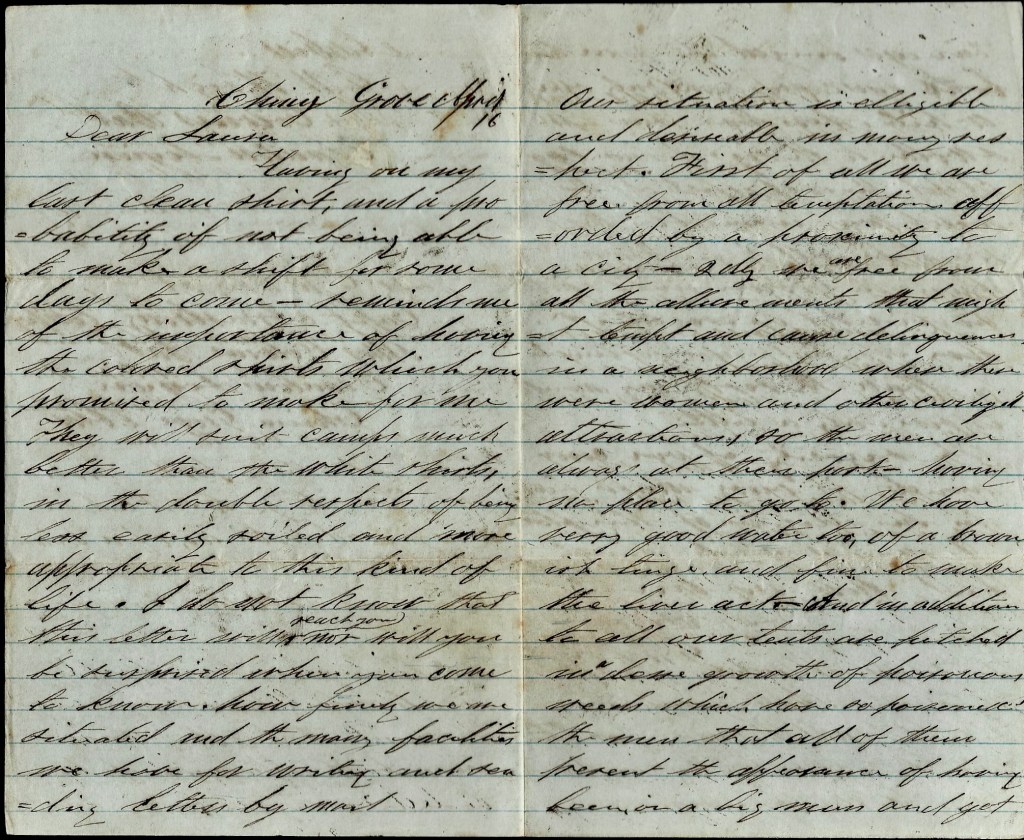 Grove April
16
Dear Laura
Having on my
last clean shirt, and a pro
=bability of not being able
to make a shift for some
days to come – reminds me
of the importance of having
the colored shirts which you
promised to make for me
They will suit camps much
better than the white shirts,
in the double respects of being
less easily soiled and more
appropriate to this kind of
life. I do not know that
reach you
this letter will nor will you
be surprised when you come
to know how finely we are
situated and the many facilities
we have for writing and sen
=ding letters by mail
Our situation is elligible
and desireable in many res
=pect. First of all we are
free from all temptation aff
=orded by a proximity to
are
a city – 2dly we free from
all the allurements that migh
=t tempt and cause delinquences
in a neighborhood where there
were women and other civilized
attractions, so the men are
always at their post – having
no place to go to. We have
very good water too, of a brown
ish tinge and fine to make
the liver act – And in addition
to all our tents are pitched
in a dense growth of poisonous
weeds which have so poisoned
the men that all of them
present the appearance of having
been on a big and got